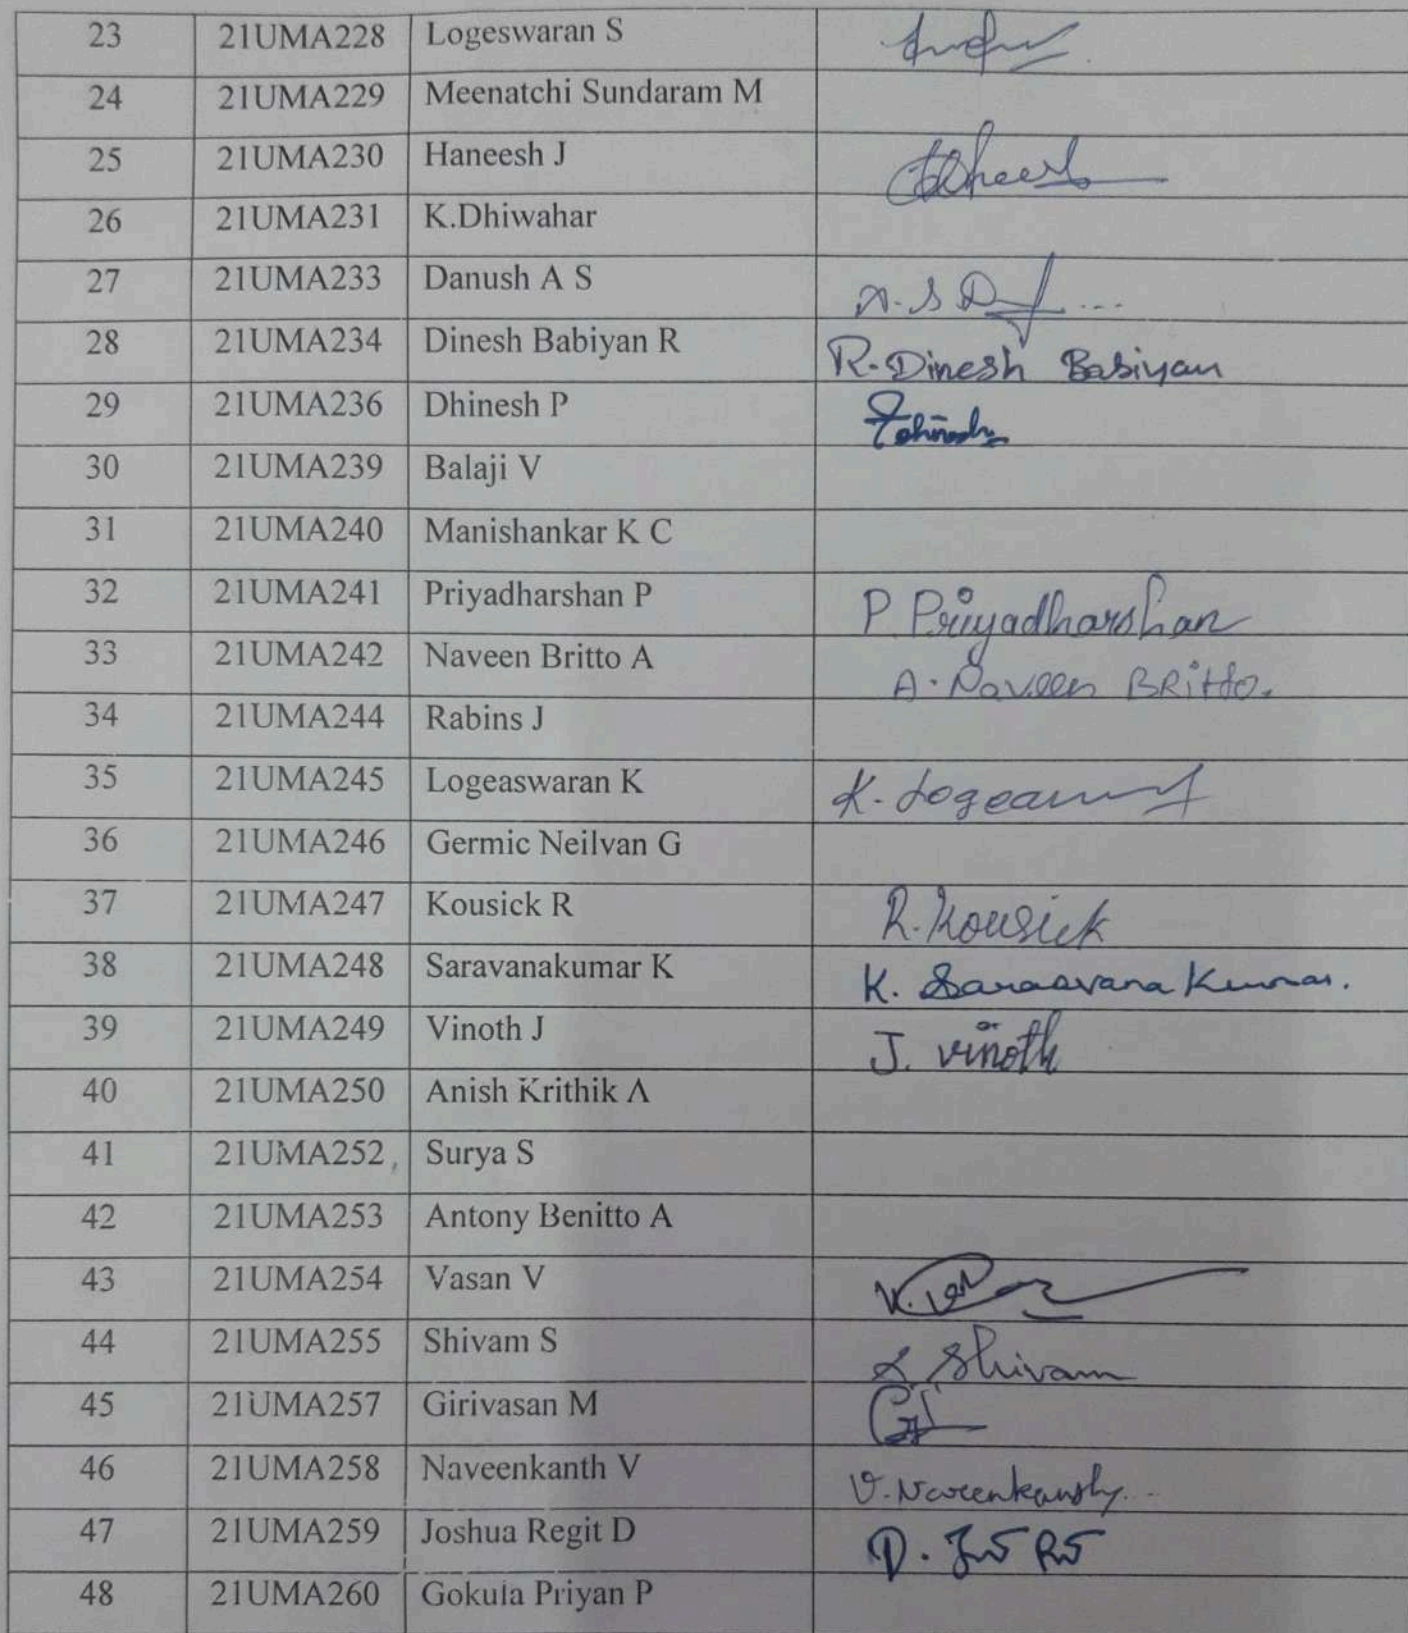 23 21UMA228 Logeswaran S
24 21UMA229 Meenatchi Sundaram M
25 21UMA230 Haneesh J
26 21UMA231 K.Dhiwahar
27 21UMA233 Danush A S A.S D
28 21UMA234 Dinesh Babiyan R R. Dinesh Babiyan
29 21UMA236 Dhinesh P
30 21UMA239 Balaji V
31 21UMA240 Manishankar K C
32 21UMA241 Priyadharshan P P Priyadharshan
33 21UMA242 Naveen Britto A A. Naveen BRitto.
34 21UMA244 Rabins J
35 21UMA245 Logeaswaran K K.
36 21UMA246 Germic Neilvan G
37 21UMA247 Kousick R R. Kousick
38 21UMA248 Saravanakumar K K. Saraavana Kumar.
39 21UMA249 Vinoth J J. vinoth
40 21UMA250 Anish Krithik A
41 21UMA252, Surya S
42 21UMA253 Antony Benitto A
43 21UMA254 Vasan V
44 21UMA255 Shivam S S. Shivam
45 21UMA257 Girivasan M
46 21UMA258 Naveenkanth V V.
47 21UMA259 Joshua Regit D D.
48 21UMA260 Gokula Priyan P